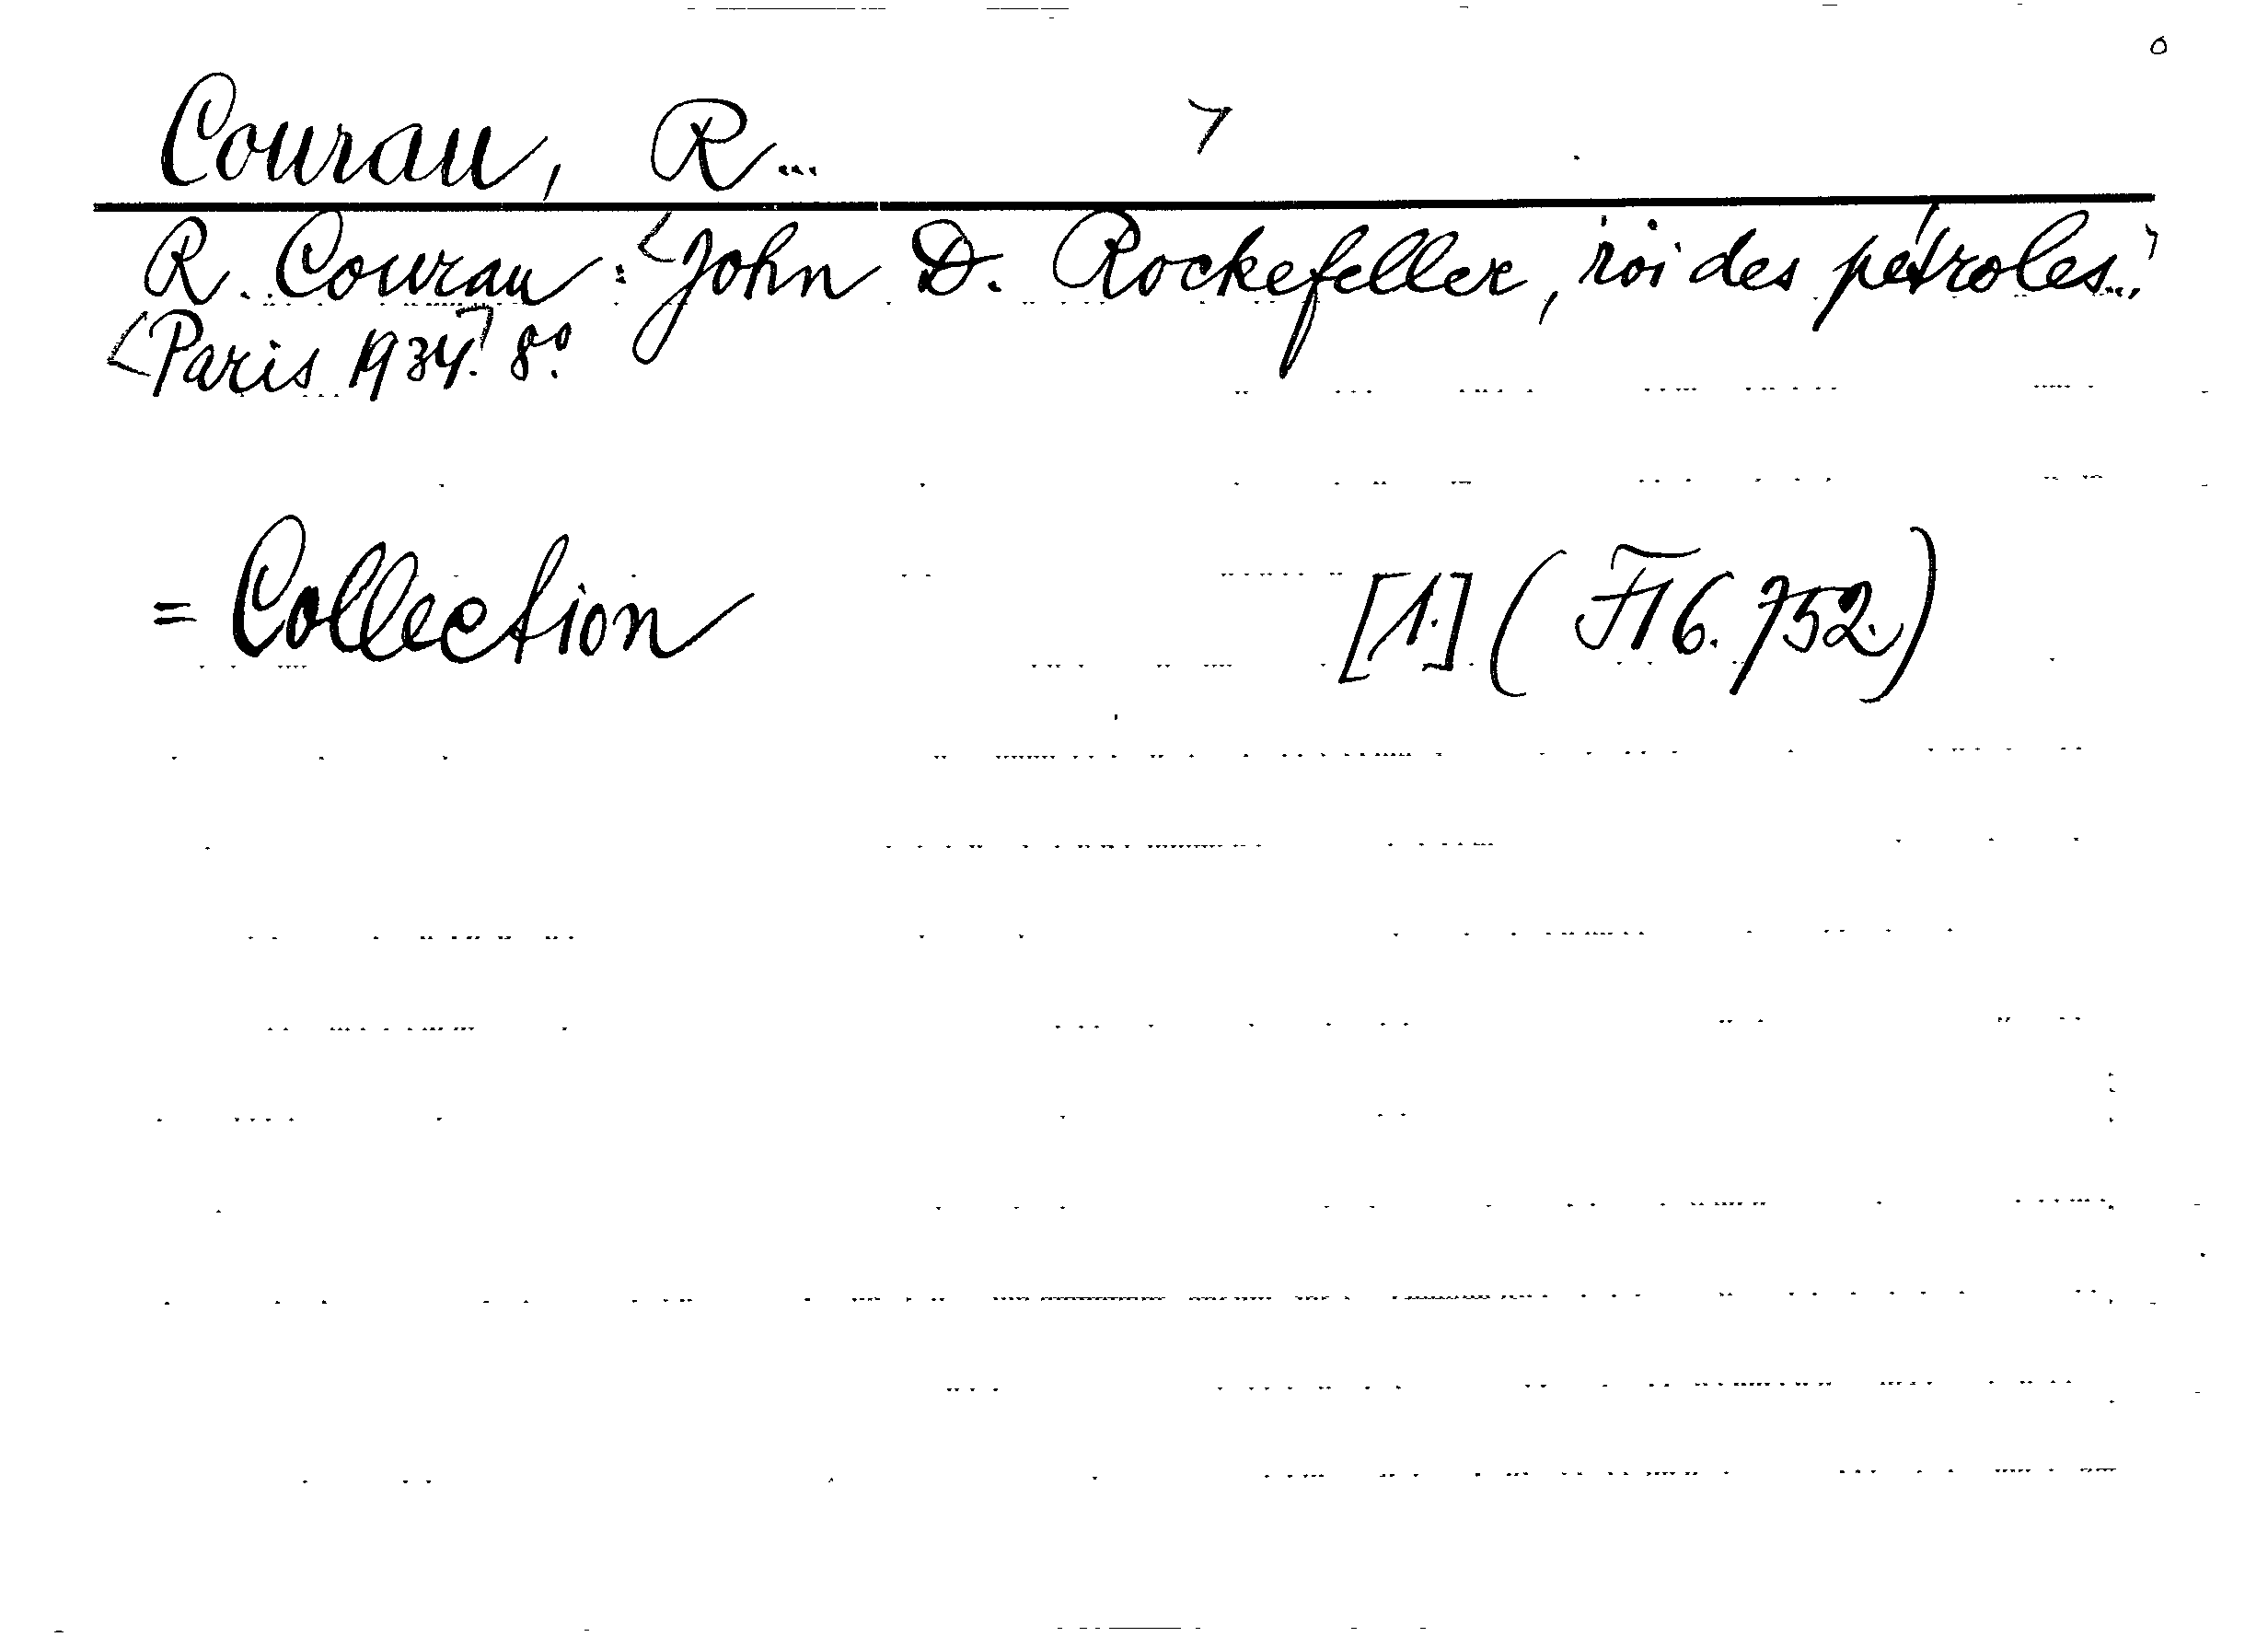 Courau, R...
R. Courau: <John D. Rockefeller, roi des pétroles...>
<Paris 1934.> 8°.
= Collection [1.] (F16.752.)